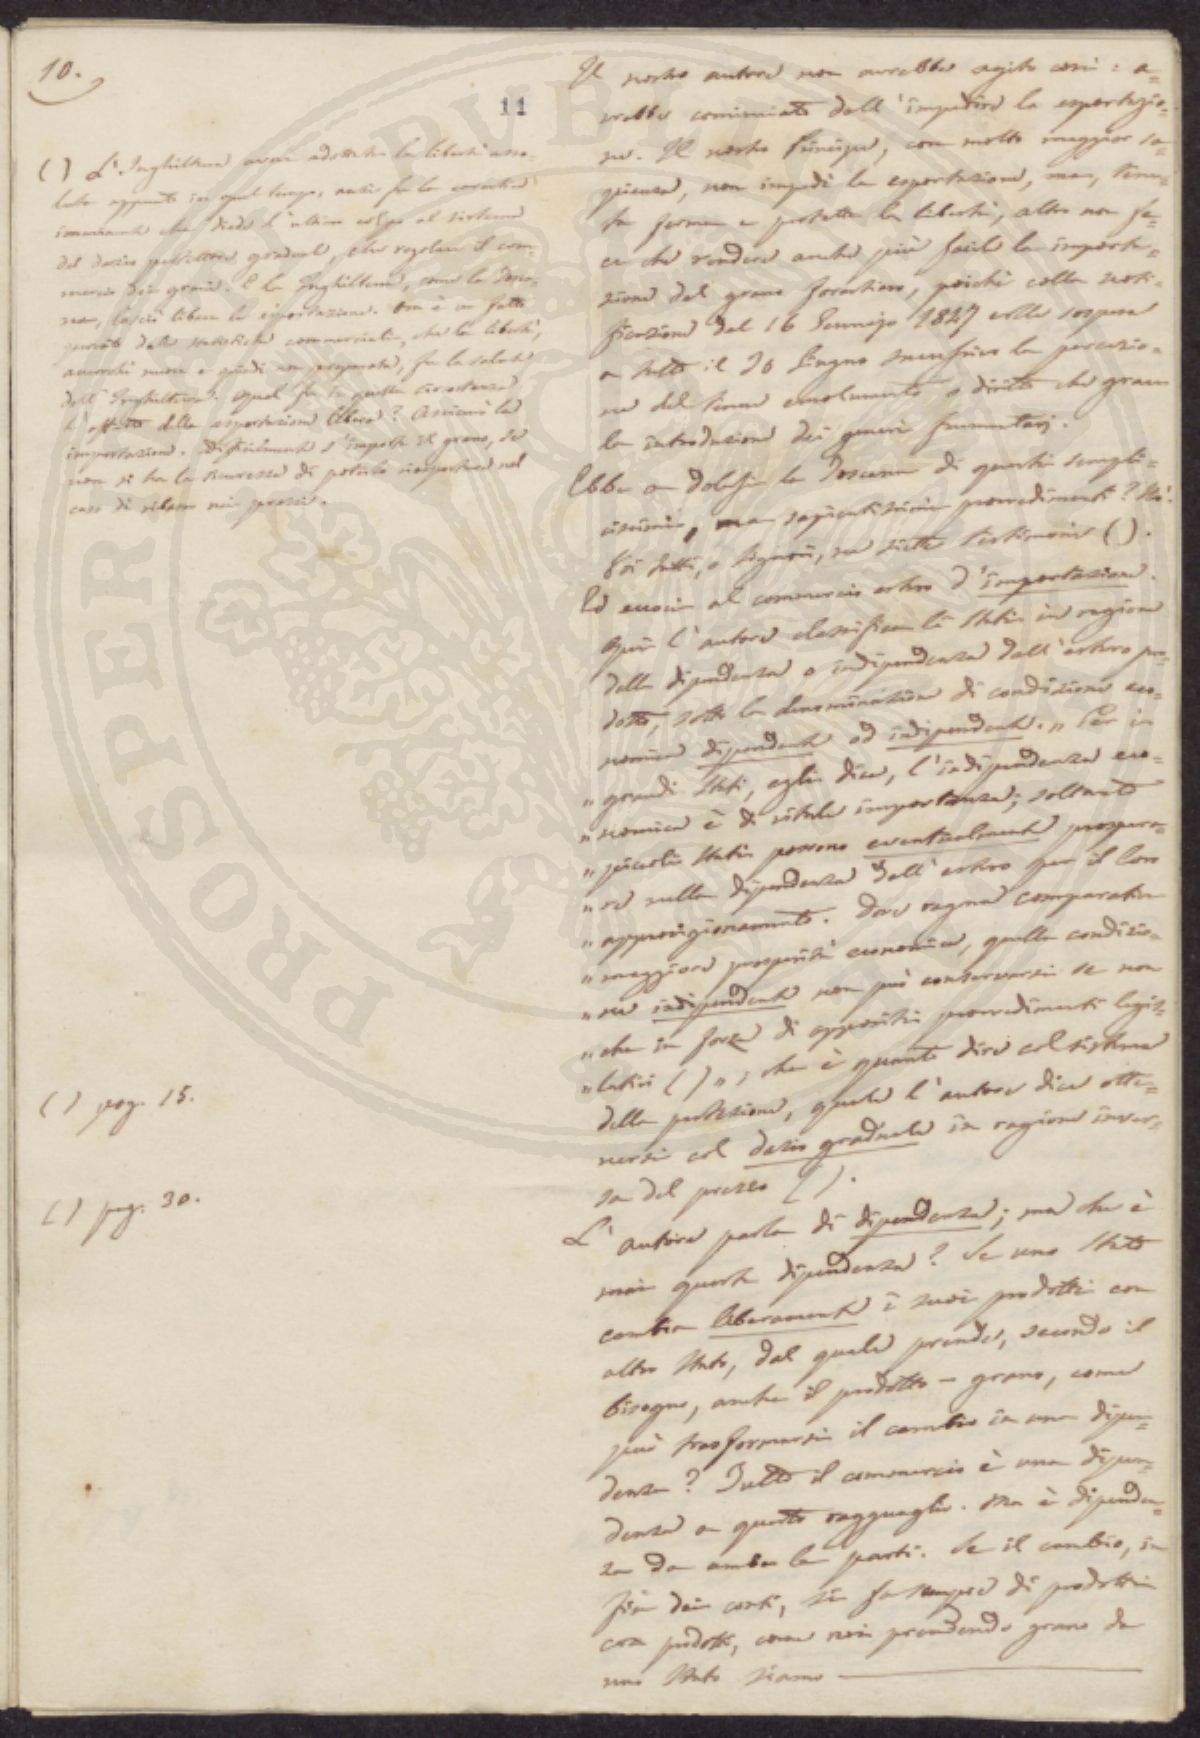 10.
11
( ) L'Inghilterra aveva adottata la libertà asso-
luta appunto in quel tempo, anzi fu la carestia
imminente che diede l'ultimo colpo al sistema
del dazio protettore graduale, che regolava il com-
mercio dei grani. E la Inghilterra, come la Tosca-
na, lasciò libera la esportazione. Ora è un fatto
provato dalle statistiche commerciali, che la libertà,
ancorchè nuova e quindi non preparata, fu la salute
dell'Inghilterra. Qual fu in quella circostanza
l'effetto della esportazione libera? Assicurò la
importazione. Difficilmente s'importa il grano, se
non si ha la sicurezza di poterlo riesportare nel
caso di ribasso nei prezzi.
( ) pag. 15.
( ) pag. 30.
Il nostro autore non avrebbe agito così: a-
vrebbe cominciato dall'impedire la esportazio-
ne. Il nostro Principe, con molto maggior sa-
pienza, non impedì la esportazione, ma, tenu-
ta ferma e protetta la libertà, altro non fe-
ce che rendere anche più facile la importa-
zione del grano forestiero, poichè colla noti-
ficazione del 16 Gennajo 1847 volle sospesa
a tutto il 30 Giugno successivo la percezio-
ne del tenue emolumento o diritto che grava
la introduzione dei generi frumentarj.
Ebbe a dolersi la Toscana di questi sempli-
cissimi, ma sapientissimi provvedimenti? No.
Voi tutti, o Signori, ne siete testimoni ( ).
Ed eccoci al commercio estero d'importazione.
Qui l'autore classifica li Stati in ragione
della dipendenza o indipendenza dall'estero pro-
dotto, sotto la denominazione di condizione eco-
nomica dipendente od indipendente. „ Per i
„ grandi Stati, egli dice, l'indipendenza eco-
„ nomica è di vitale importanza; soltanto
„ piccoli Stati possono eventualmente prospera-
„ re nella dipendenza dall'estero per il loro
„ approvigionamento. Dove regna comparativa
„ maggiore prosperità economica, quella condizio-
„ ne indipendente non può conservarsi se non
„ che in forza di appositi provvedimenti legis-
„ lativi ( ) „ ; che è quanto dire col sistema
della protezione, quale l'autore dice otte-
nersi col dazio graduale in ragione inver-
sa del prezzo ( ).
L'autore parla di dipendenza; ma che è
mai questa dipendenza? Se uno Stato
cambia liberamente i suoi prodotti con
altro Stato, dal quale prende, secondo il
bisogno, anche il prodotto - grano, come
può trasformarsi il cambio in una dipen-
denza? Tutto il commercio è una dipen-
denza a questo ragguaglio. Ma è dipenden-
za da ambe le parti. Se il cambio, in
fin dei conti, si fa sempre di prodotti
con prodotti, come noi prendendo grano da
uno Stato siamo